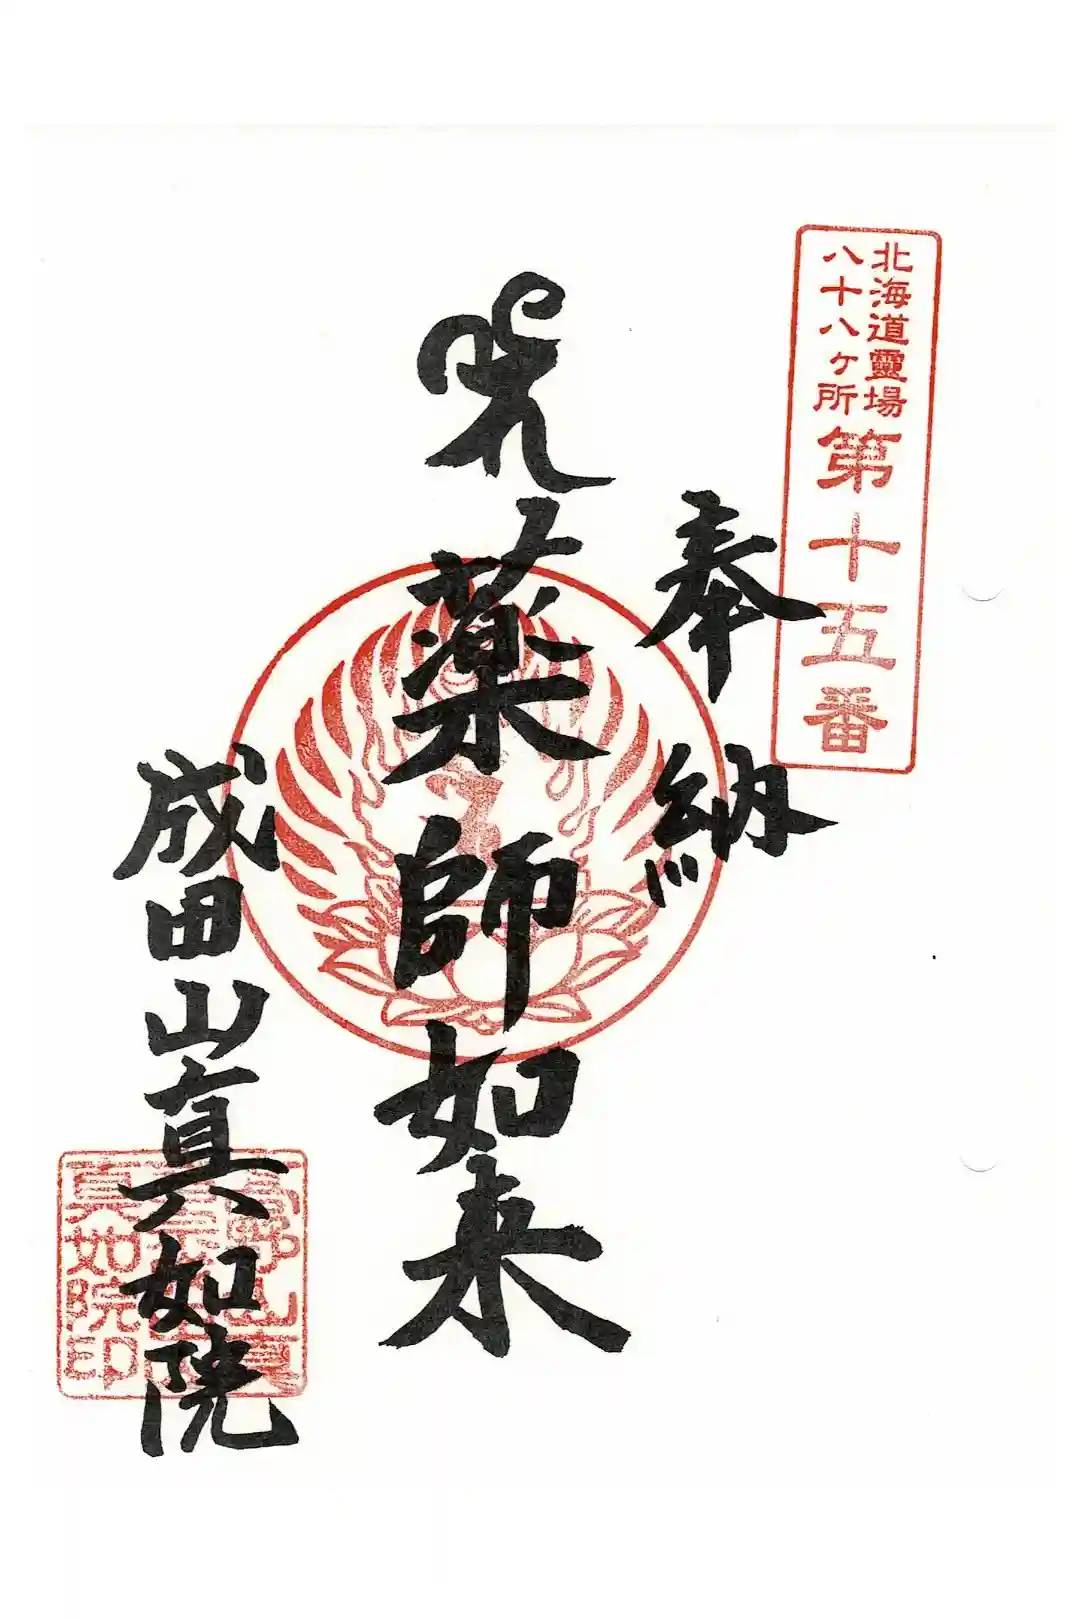 北海道靈場
八十八ヶ所
第十五番
奉納
薬師如来
成田山真如院
真如院印